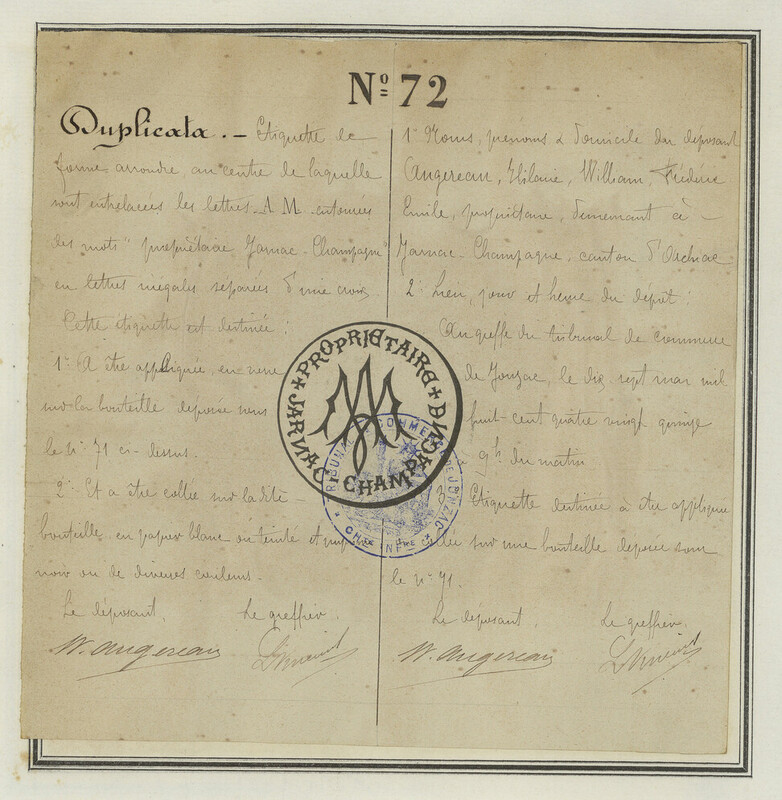 Nº 72
Duplicata. — Etiquette de
forme arrondie, au centre de laquelle
sont entrelacées les lettres A M entourées
des mots " propriétaire Jarnac-Champagne"
en lettres inégales séparées d'une croix.
Cette étiquette est destinée :
1º A être appliquée, en verre
sur la bouteille déposée sous
le nº 71 ci-dessus.
2º Et a être collée sur la dite
bouteille, en papier blanc ou teinté et
noir ou de diverses couleurs.
Le déposant, Le greffier,
W. Angereau
1º Noms, prénoms & domicile du déposant
Angereau, Hilaire, William, Frédéric
Emile, propriétaire, demeurant à
Jarnac-Champagne, canton d'Archiac
2º Lieu, jour et heure du dépôt :
Au greffe du tribunal de commerce
de Jonzac, le dix sept mai mil
huit-cent quatre vingt quinze
9h du matin
3º Etiquette destinée à être appliquée
collée sur une bouteille déposée sous
le nº 71.
Le déposant, Le greffier,
W. Angereau
PROPRIETAIRE
JARNAC CHAMPAGNE
AM
TRIBUNAL DE COMMERCE DE JONZAC
CHte INFre